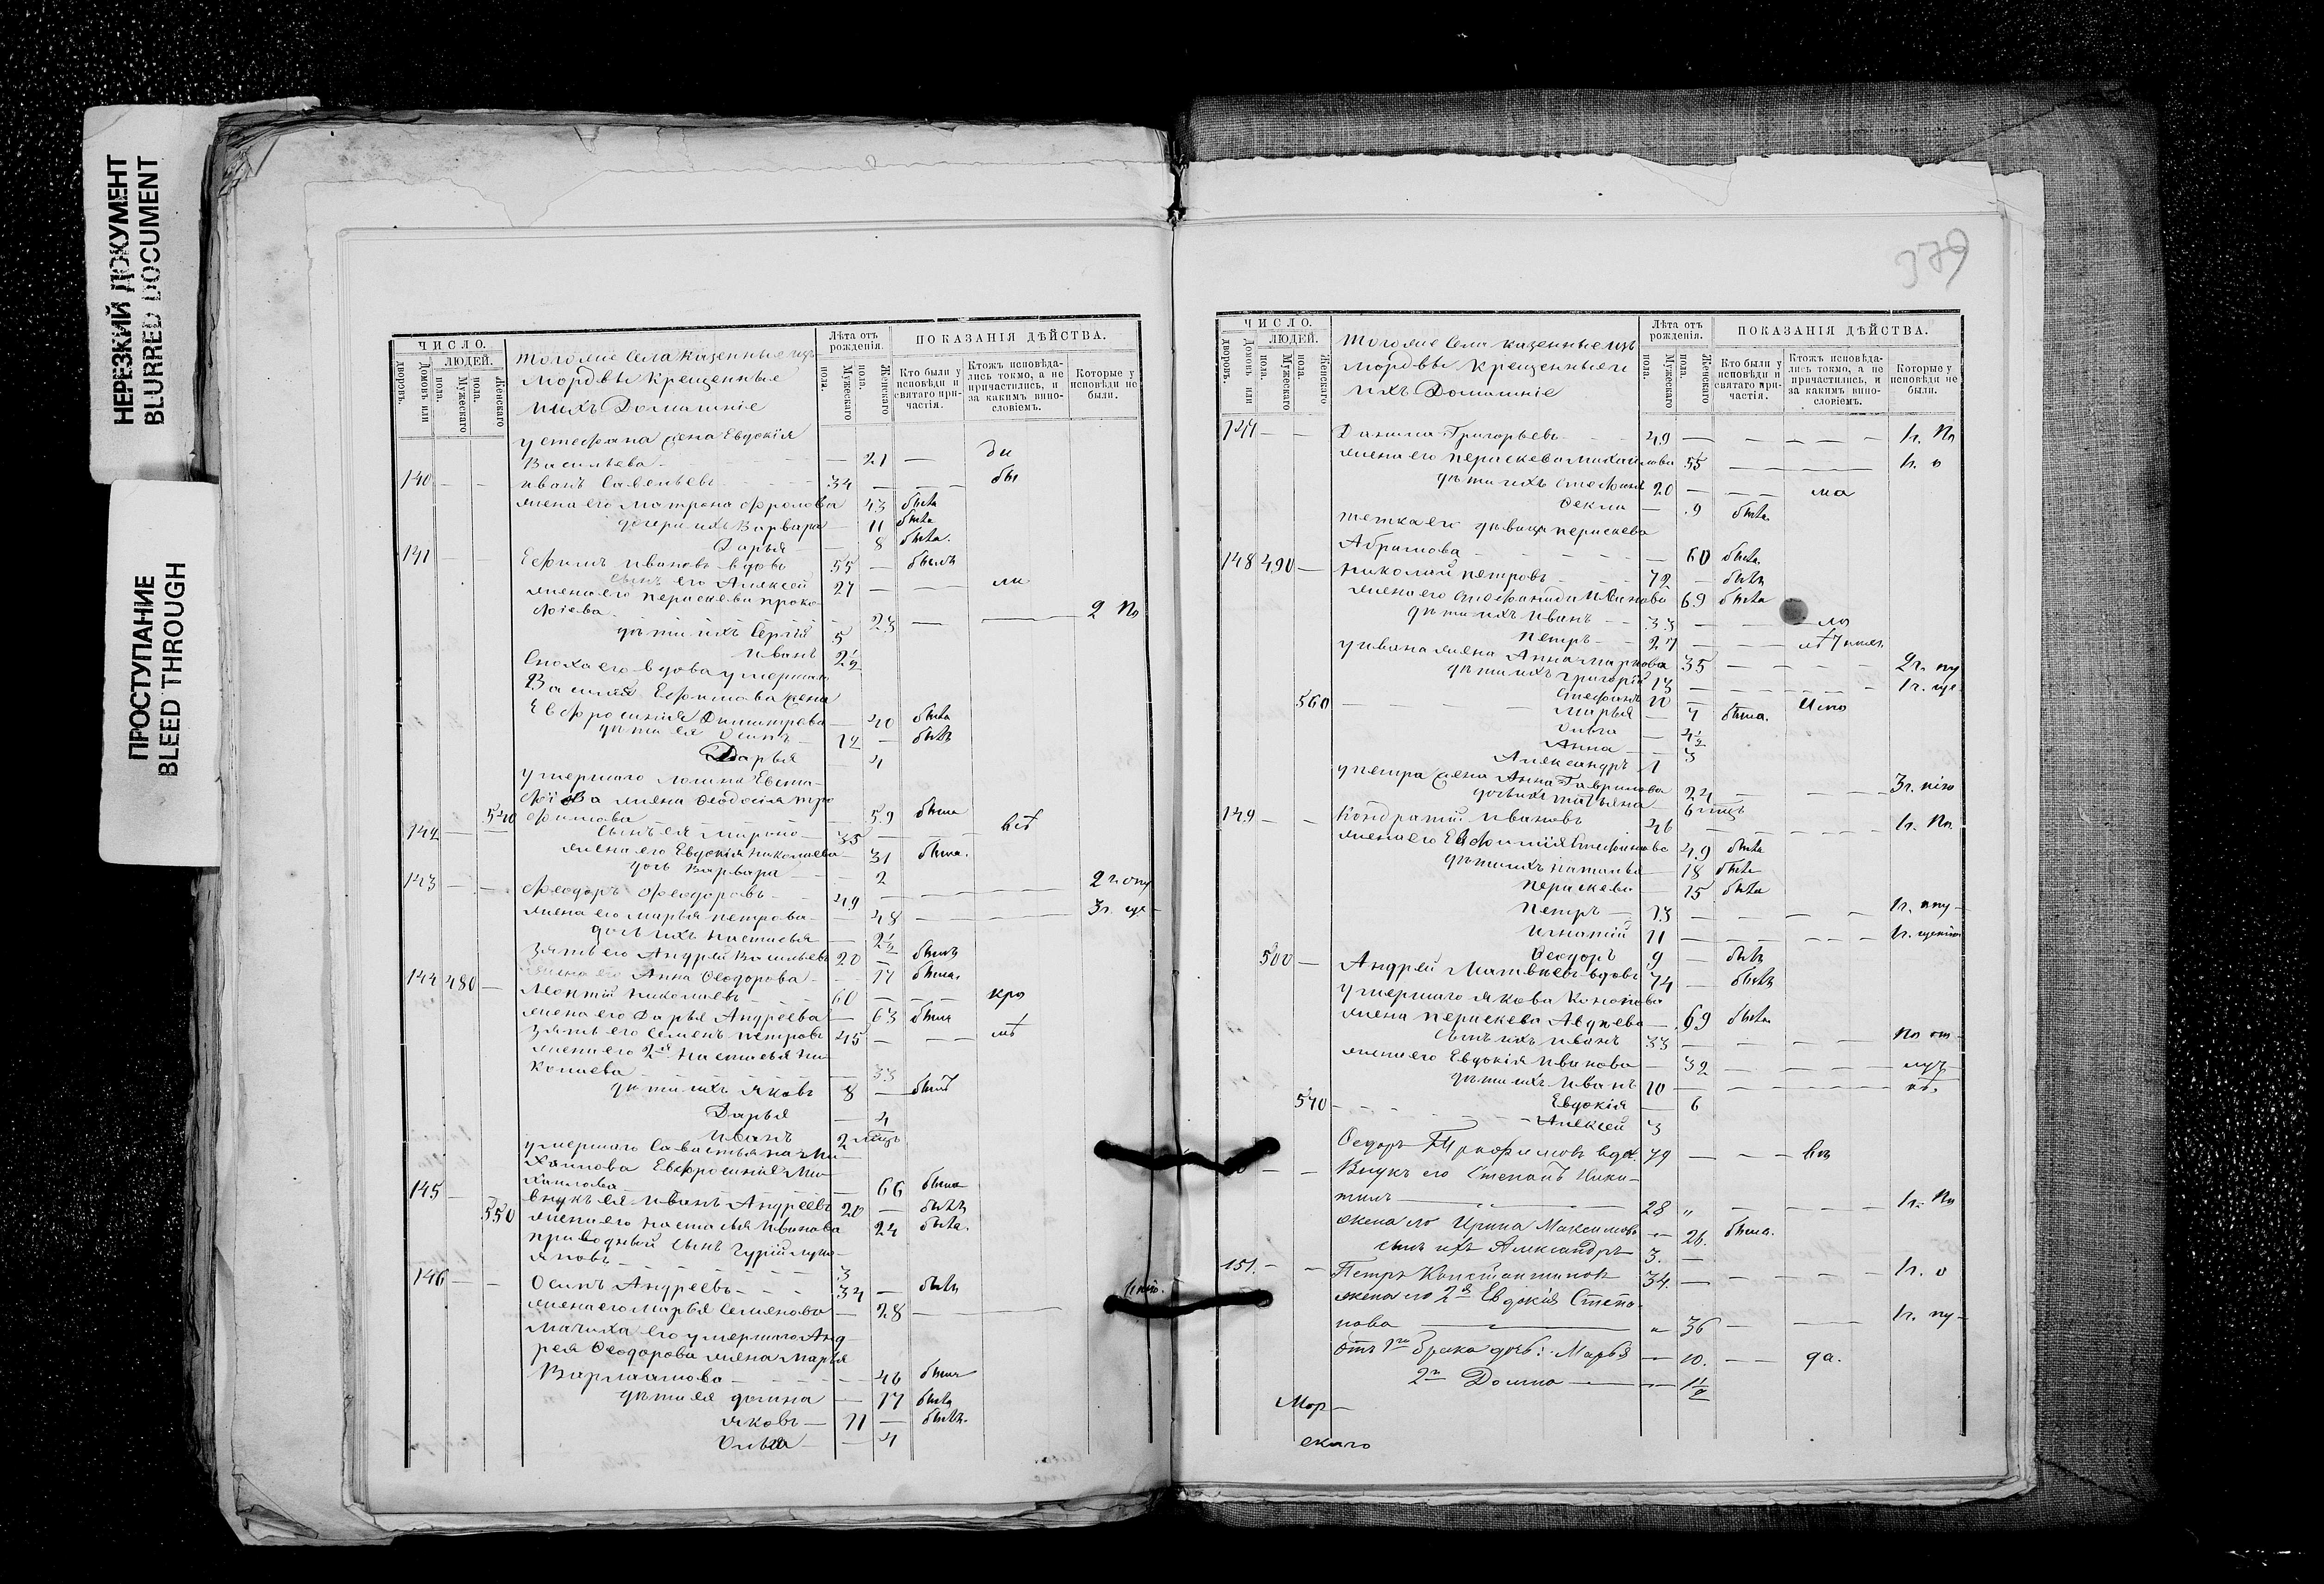 НЕРЕЗКИЙ ДОКУМЕНТ
BLURRED DOCUMENT
ПРОСТУПАНИЕ
BLEED THROUGH
ЧИСЛО.
ЛЮДЕЙ.
Домовъ или дворовъ.
Мужескаго пола.
Женскаго пола.
тогоже села казенные изъ
мордвы крещенные
и ихъ Домашнiе
Лѣта отъ рожденiя.
Мужескаго пола.
Женскаго пола.
ПОКАЗАНIЯ ДѢЙСТВА.
Кто были у исповѣди и святаго причастiя.
Ктожъ исповѣдались токмо, а не причастились, и за какимъ винословiемъ.
Которые у исповѣди не были.
у стефана жена Евдокiя
Васильева 21
140 иванъ Савельевъ 34
жена его Матрона Фролова 43 была
дочери ихъ Варвара 11 была
Дарья 8 была.
141 Ефимъ Ивановъ вдовъ 55 былъ
сынъ его Алексей 27
жена его Параскева Проко-
пiева 23
дѣти ихъ Сергiй 5
Иванъ 2½
Сноха его вдова умершаго
Василiя Ефимова жена
Евфросинiя Димитрева 40 была
дѣти ея Осипъ 12 былъ
Дарья 4
умершаго Логина Евста-
фiева жена Феодосiя Тро
540 фимова 59 была
142 сынъ ея Миронъ 35
жена его Евдокiя Николаева 31 была.
дочь Варвара 2
143 Феодоръ Феодоровъ 49
жена его Марья Петрова 48
дочь ихъ Настасья 2½
зять его Андрей Васильевъ 20 былъ
жена его Анна Феодорова 17 была.
144 480 Леонтiй Николаевъ 60
жена его Дарья Андреева 63 была
зять его Семенъ Петровъ 45
жена его 2я Настасья Ни
колаева 33
дѣти ихъ Яковъ 8
Дарья 4
Иванъ 2 мец
умершаго Савастьяна Ми
хайлова Евфросинiя Ми-
хайлова 66 была
145 внукъ ея Иванъ Андреевъ 20 былъ
550 жена его Настасья Иванова 24 была.
приводный сынъ Гурiй Лукь-
яновъ 3
146 Осипъ Андреевъ 34 былъ
жена его Марья Семенова 28
Мачиха его умершаго Анд-
рея Феодорова жена Марья
Варламова 46 была
дѣти ея Домна 17 была
Яковъ 11 былъ.
Ольга 4
379
ЧИСЛО.
ЛЮДЕЙ.
Домовъ или дворовъ.
Мужескаго пола.
Женскаго пола.
тогоже села казенные изъ
мордвы крещенные и
ихъ Домашнiе
Лѣта отъ рожденiя.
Мужескаго пола.
Женскаго пола.
ПОКАЗАНIЯ ДѢЙСТВА.
Кто были у исповѣди и святаго причастiя.
Ктожъ исповѣдались токмо, а не причастились, и за какимъ винословiемъ.
Которые у исповѣди не были.
147 Данила Григорьевъ 49
жена его Параскева Михайлова 55
дѣти ихъ Стефанъ 20
Фекла 9 была.
тетка его дѣвица Параскева
Абрамова 60 была
148 490 Николай Петровъ 72 былъ
жена его Стефанида Иванова 69 была
дѣти ихъ Иванъ 33
Петръ 27
у Ивана жена Анна Маркова 35
дѣти ихъ Григорiй 13
Стефанъ 10
560 Марья 7 была.
Ольга 4½
Анна 3
Александръ 1
у Петра жена Анна Гаврилова 24
дочь ихъ Татьяна 6 мец
149 Кондратiй Ивановъ 46
жена его Евфимiя Стефанова 49 была
дѣти ихъ Наталья 18 была
Параскева 15 была
Петръ 13
Игнатiй 11
500 Феодоръ 9 былъ
Андрей Матвеевъ вдовъ 74 былъ
умершаго Якова Кононова
жена Параскева Авдеева 69 была
сынъ ихъ Иванъ 33
жена его Евдокiя Иванова 32
дѣти ихъ Иванъ 10
570 Евдокiя 6
Алексей 3
Федоръ Трофимовъ вдов. 79
Внукъ его Степанъ Ники-
тинъ 28
жена его Ирина Максимова 26. была.
сынъ ихъ Александръ 3.
151. Петръ Константиновъ 34.
жена его 2я Евдокiя Степа-
нова 36
отъ 1го брака дочь: Марья 10.
2го Домна 1½
Мор-
скаго